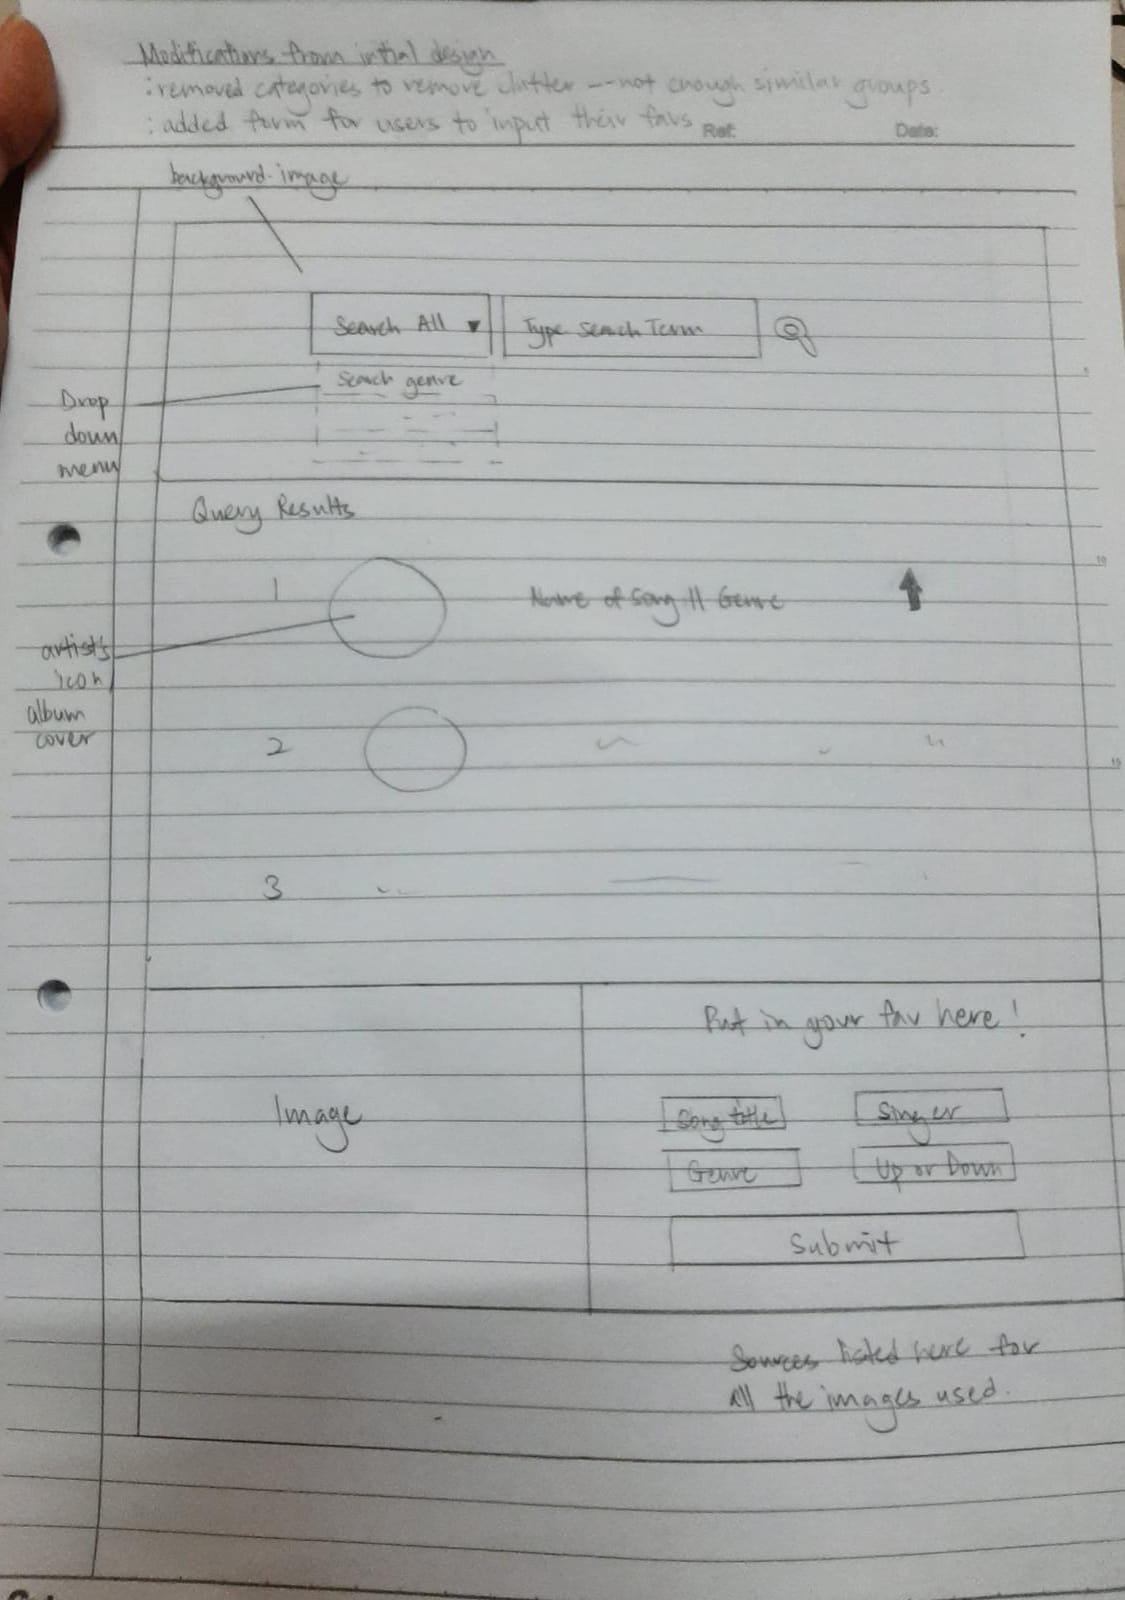 Modifications from initial design
: removed categories to remove clutter -- not enough similar groups.
: added form for users to input their favs
Ref:
Date:
background-image
Search All ▼
Type Search Term
Search genre
Drop
down
menu
Query Results
1
Name of Song || Genre
artist's
icon
album
cover
2
3
Put in your fav here!
Image
Song title
Singer
Genre
Up or Down
Submit
Sources listed here for
all the images used.
5
10
15